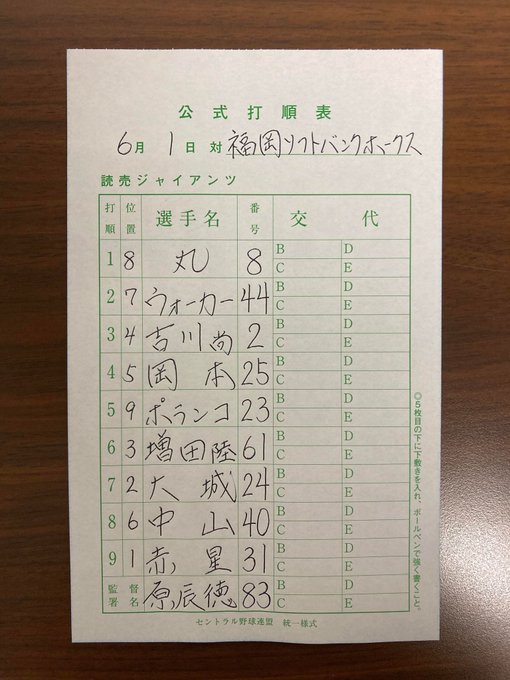 公式打順表
6月1日対 福岡ソフトバンクホークス
読売ジャイアンツ
打順 位置 選手名 番号 交代
1 8 丸 8 B D C E
2 7 ウォーカー 44 B D C E
3 4 吉川尚 2 B D C E
4 5 岡本 25 B D C E
5 9 ポランコ 23 B D C E
6 3 増田陸 61 B D C E
7 2 大城 24 B D C E
8 6 中山 40 B D C E
9 1 赤星 31 B D C E
監督署名 原辰徳 83 B D C E
セントラル野球連盟 統一様式
◎5枚目の下に下敷きを入れ、ボールペンで強く書くこと。